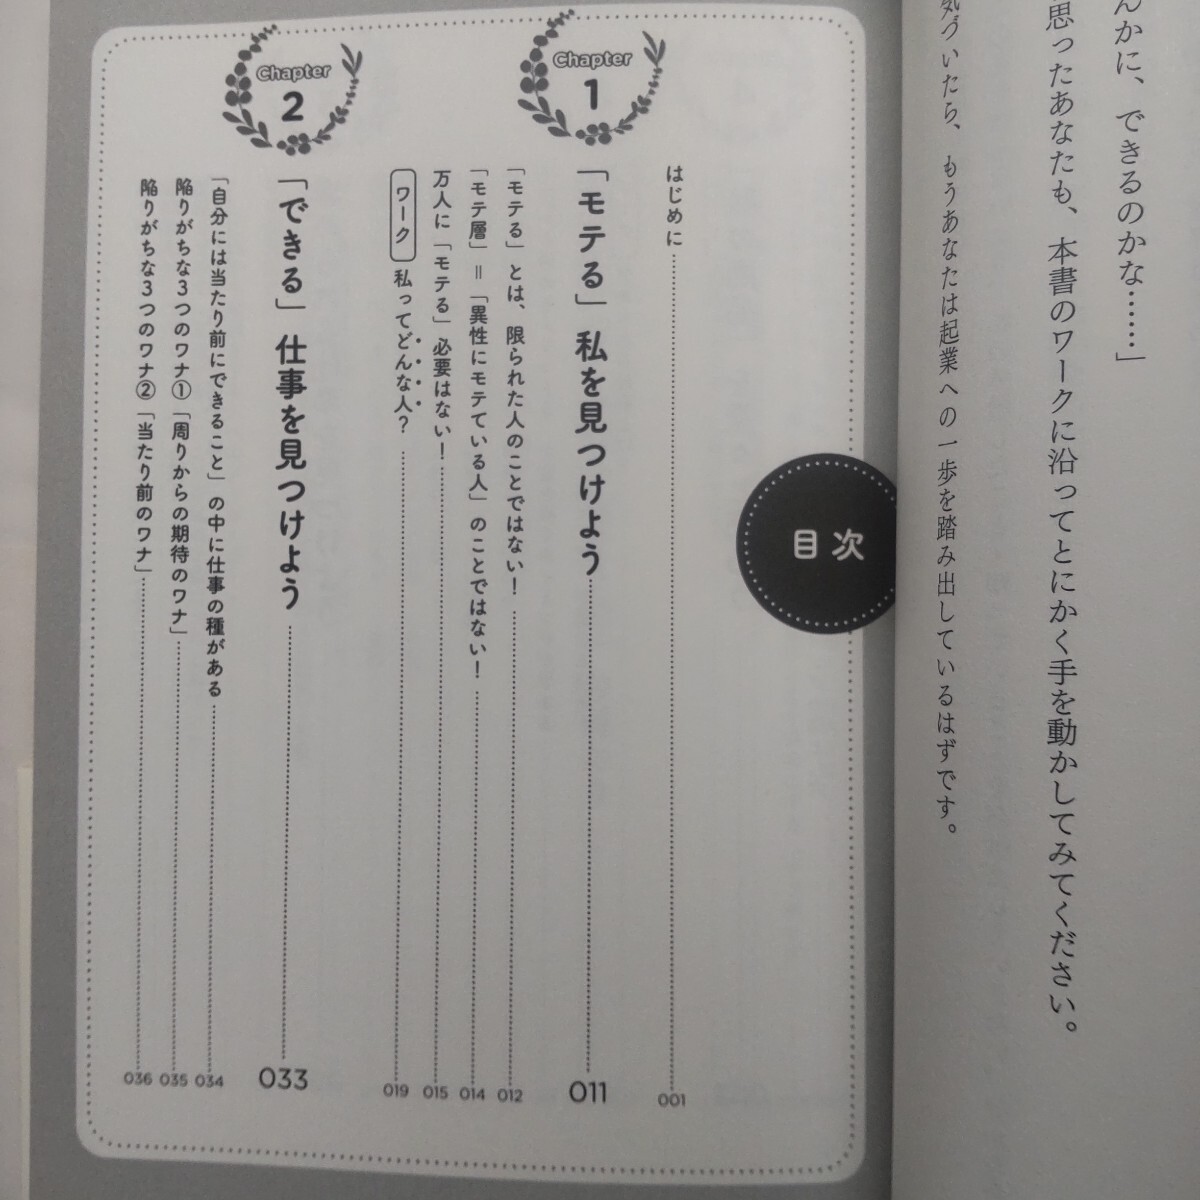 んかに、できるのかな……」
思ったあなたも、本書のワークに沿ってとにかく手を動かしてみてください。
気づいたら、もうあなたは起業への一歩を踏み出しているはずです。
目次
はじめに 001
Chapter 1
「モテる」私を見つけよう 011
「モテる」とは、限られた人のことではない! 012
「モテ層」=「異性にモテている人」のことではない! 014
万人に「モテる」必要はない! 015
ワーク 私ってどんな人? 019
Chapter 2
「できる」仕事を見つけよう 033
「自分には当たり前にできること」の中に仕事の種がある 034
陥りがちな3つのワナ① 「周りからの期待のワナ」 035
陥りがちな3つのワナ② 「当たり前のワナ」 036